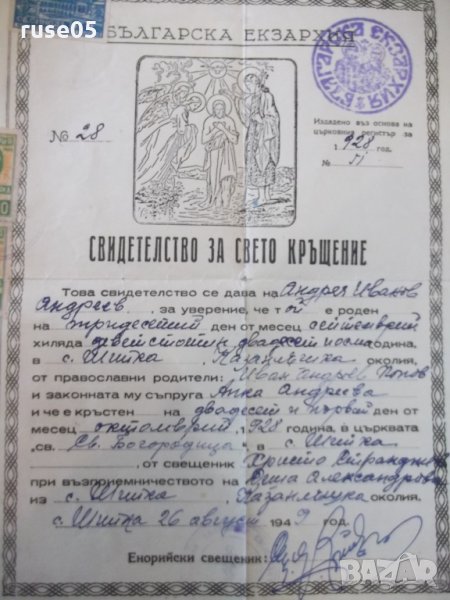 ruse05
БЪЛГАРСКА ЕКЗАРХИЯ
БЪЛГАРСКА ЕКЗАРХИЯ
Издадено въз основа на
църковния регистър за
1928 год.
№ 28
№ 51
СВИДЕТЕЛСТВО ЗА СВЕТО КРЪЩЕНИЕ
Това свидетелство се дава на Андрея Иванов
Андреев за уверение, че той е роден
на тридесетий ден от месец септемврий
хиляда деветстотин двадесет и осма година,
в с. Шипка, Казанлъшка околия,
от православни родители: Иван Андреев Попов
и законната му съпруга Анка Андреева
и че е кръстен на двадесет и първий ден от
месец октомврий 1928 година, в църквата
"св. Св. Богородица" в с. Шипка
, от свещеник Христо
при възприемничеството на Александрова
из с. Шипка, Казанлъшка околия.
с. Шипка 26 август 1949 год.
Енорийски свещеник:
BAZAR.BG